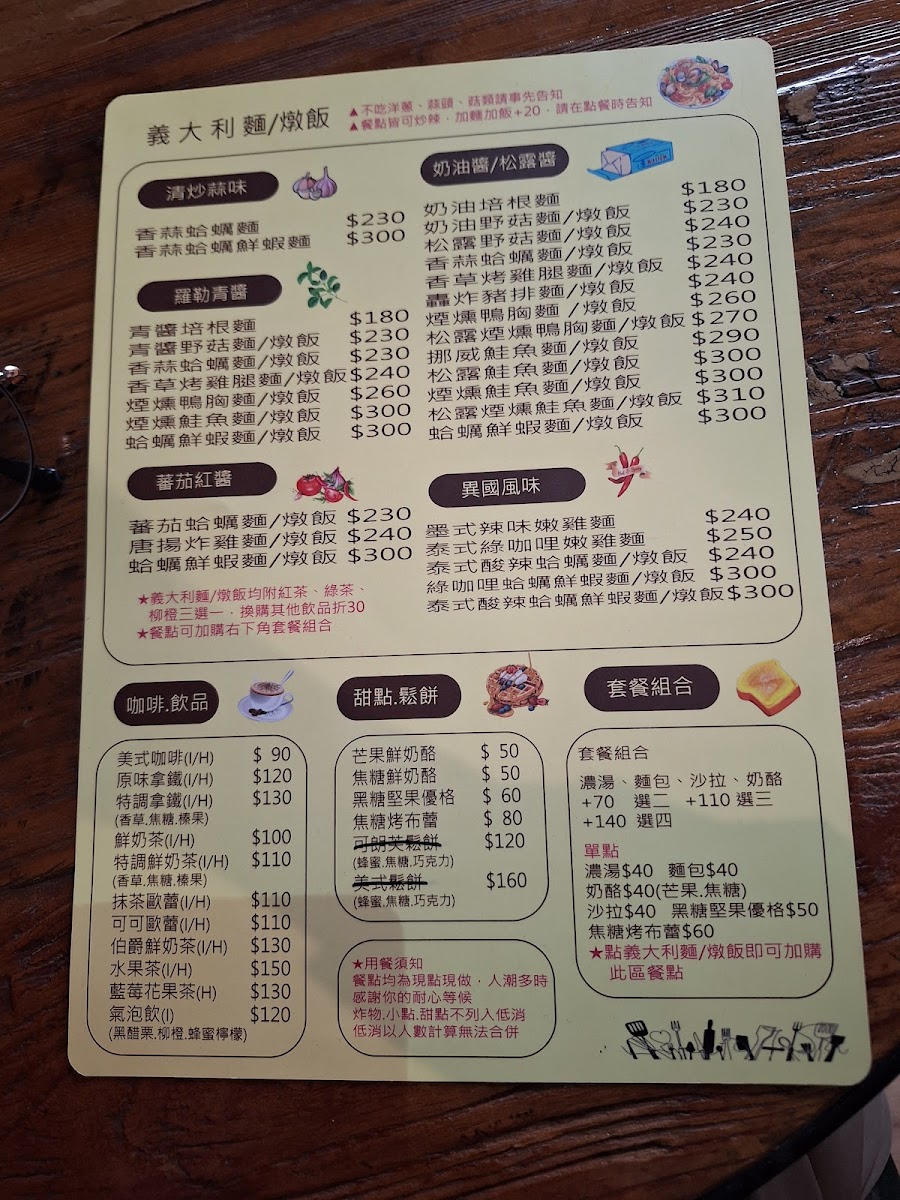 義大利麵/燉飯
▲不吃洋蔥、蒜頭、菇類請事先告知
▲餐點皆可炒辣，加麵加飯+20，請在點餐時告知
清炒蒜味
香蒜蛤蠣麵 $230
香蒜蛤蠣鮮蝦麵 $300
羅勒青醬
青醬培根麵 $180
青醬野菇麵/燉飯 $230
香蒜蛤蠣麵/燉飯 $230
香草烤雞腿麵/燉飯 $240
煙燻鴨胸麵/燉飯 $260
煙燻鮭魚麵/燉飯 $300
蛤蠣鮮蝦麵/燉飯 $300
蕃茄紅醬
蕃茄蛤蠣麵/燉飯 $230
唐揚炸雞麵/燉飯 $240
蛤蠣鮮蝦麵/燉飯 $300
★義大利麵/燉飯均附紅茶、綠茶、
柳橙三選一，換購其他飲品折30
★餐點可加購右下角套餐組合
奶油醬/松露醬
奶油培根麵 $180
奶油野菇麵/燉飯 $230
松露野菇麵/燉飯 $240
香蒜蛤蠣麵/燉飯 $230
香草烤雞腿麵/燉飯 $240
轟炸豬排麵/燉飯 $240
煙燻鴨胸麵/燉飯 $260
松露煙燻鴨胸麵/燉飯 $270
挪威鮭魚麵/燉飯 $290
松露鮭魚麵/燉飯 $300
煙燻鮭魚麵/燉飯 $300
松露煙燻鮭魚麵/燉飯 $310
蛤蠣鮮蝦麵/燉飯 $300
異國風味
墨式辣味嫩雞麵 $240
泰式綠咖哩嫩雞麵 $250
泰式酸辣蛤蠣麵/燉飯 $240
綠咖哩蛤蠣鮮蝦麵/燉飯 $300
泰式酸辣蛤蠣鮮蝦麵/燉飯 $300
咖啡.飲品
美式咖啡(I/H) $ 90
原味拿鐵(I/H) $120
特調拿鐵(I/H) $130
(香草.焦糖.榛果)
鮮奶茶(I/H) $100
特調鮮奶茶(I/H) $110
(香草.焦糖.榛果)
抹茶歐蕾(I/H) $110
可可歐蕾(I/H) $110
伯爵鮮奶茶(I/H) $130
水果茶(I/H) $150
藍莓花果茶(H) $130
氣泡飲(I) $120
(黑醋栗.柳橙.蜂蜜檸檬)
甜點.鬆餅
芒果鮮奶酪 $ 50
焦糖鮮奶酪 $ 50
黑糖堅果優格 $ 60
焦糖烤布蕾 $ 80
可朗芙鬆餅 $120
(蜂蜜.焦糖.巧克力)
美式鬆餅 $160
(蜂蜜.焦糖.巧克力)
★用餐須知
餐點均為現點現做，人潮多時
感謝你的耐心等候
炸物.小點.甜點不列入低消
低消以人數計算無法合併
套餐組合
套餐組合
濃湯、麵包、沙拉、奶酪
+70 選二 +110 選三
+140 選四
單點
濃湯$40 麵包$40
奶酪$40(芒果.焦糖)
沙拉$40 黑糖堅果優格$50
焦糖烤布蕾$60
★點義大利麵/燉飯即可加購
此區餐點